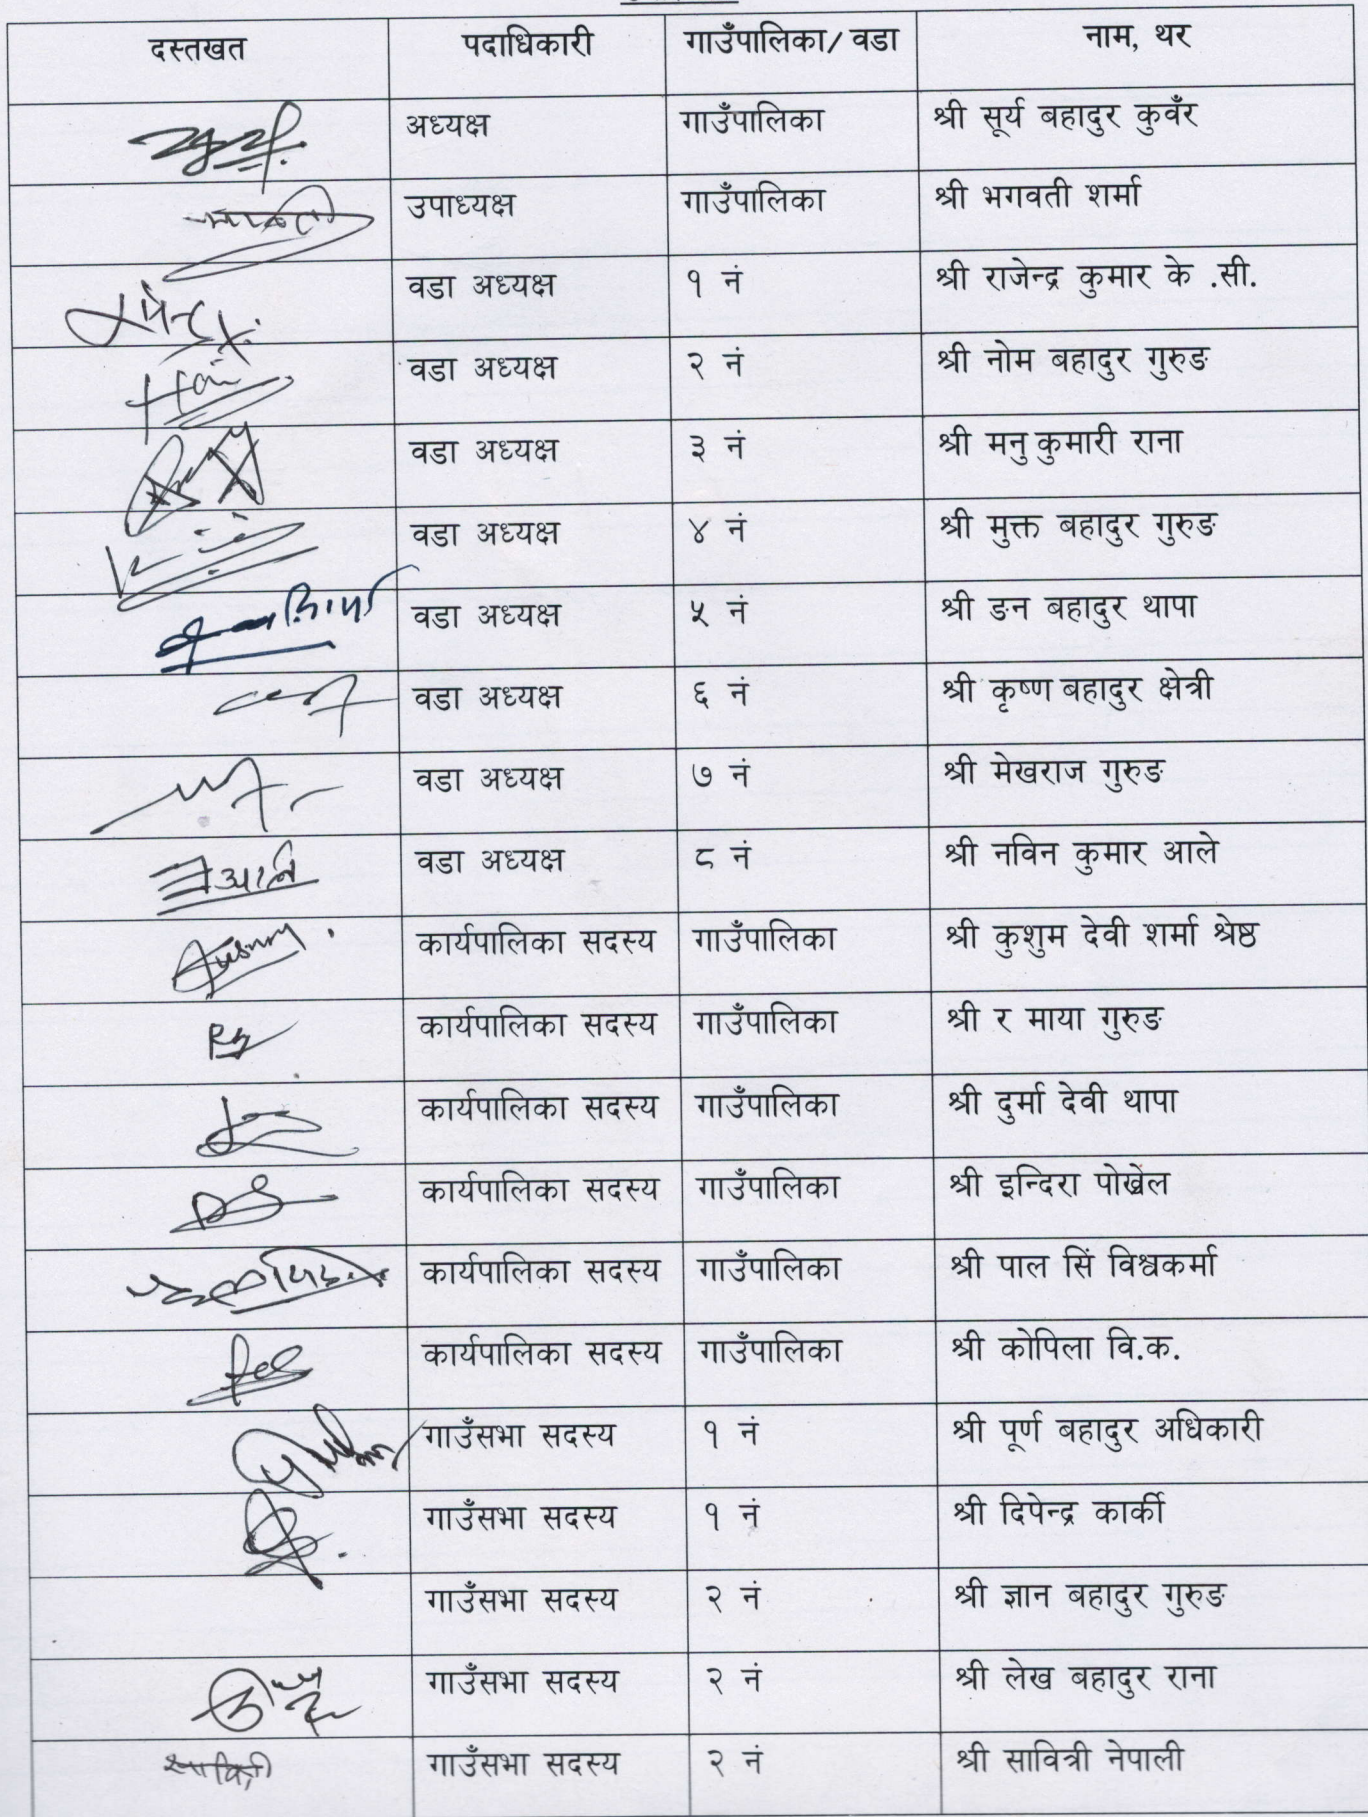 दस्तखत पदाधिकारी गाउँपालिका/ वडा नाम, थर
अध्यक्ष गाउँपालिका श्री सूर्य बहादुर कुवँर
उपाध्यक्ष गाउँपालिका श्री भगवती शर्मा
वडा अध्यक्ष १ नं श्री राजेन्द्र कुमार के .सी.
वडा अध्यक्ष २ नं श्री नोम बहादुर गुरुङ
वडा अध्यक्ष ३ नं श्री मनु कुमारी राना
वडा अध्यक्ष ४ नं श्री मुक्त बहादुर गुरुङ
वडा अध्यक्ष ५ नं श्री ङन बहादुर थापा
वडा अध्यक्ष ६ नं श्री कृष्ण बहादुर क्षेत्री
वडा अध्यक्ष ७ नं श्री मेखराज गुरुङ
वडा अध्यक्ष ८ नं श्री नविन कुमार आले
कार्यपालिका सदस्य गाउँपालिका श्री कुशुम देवी शर्मा श्रेष्ठ
कार्यपालिका सदस्य गाउँपालिका श्री र माया गुरुङ
कार्यपालिका सदस्य गाउँपालिका श्री दुर्मा देवी थापा
कार्यपालिका सदस्य गाउँपालिका श्री इन्दिरा पोखेल
कार्यपालिका सदस्य गाउँपालिका श्री पाल सिं विश्वकर्मा
कार्यपालिका सदस्य गाउँपालिका श्री कोपिला वि.क.
गाउँसभा सदस्य १ नं श्री पूर्ण बहादुर अधिकारी
गाउँसभा सदस्य १ नं श्री दिपेन्द्र कार्की
गाउँसभा सदस्य २ नं श्री ज्ञान बहादुर गुरुङ
गाउँसभा सदस्य २ नं श्री लेख बहादुर राना
सावित्री गाउँसभा सदस्य २ नं श्री सावित्री नेपाली